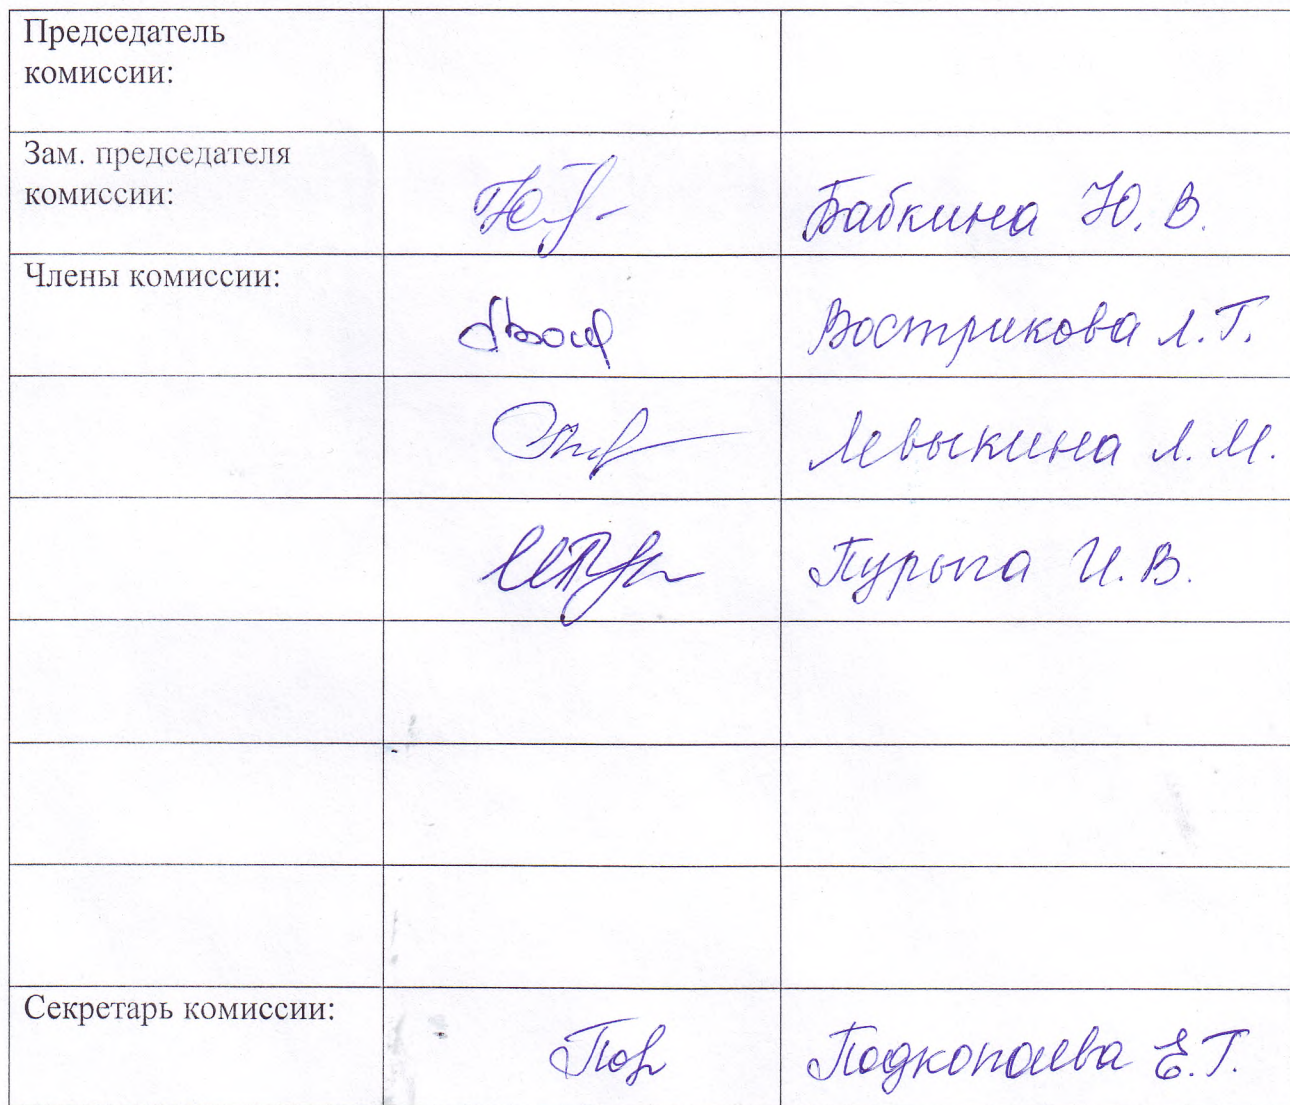 Председатель
комиссии:
Зам. председателя
комиссии:
Бабкина Ю. В.
Члены комиссии:
Вострикова Л. Г.
Левыкина Л. М.
Пурыга И. В.
Секретарь комиссии:
Подкопаева Е. Г.